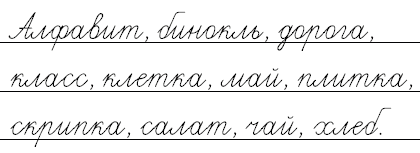 Алфавит, бинокль, дорога,
класс, клетка, май, плитка,
скрипка, салат, чай, хлеб.